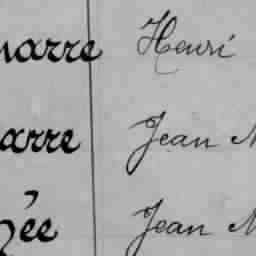 narre Henri
arre Jean M
gée Jean M